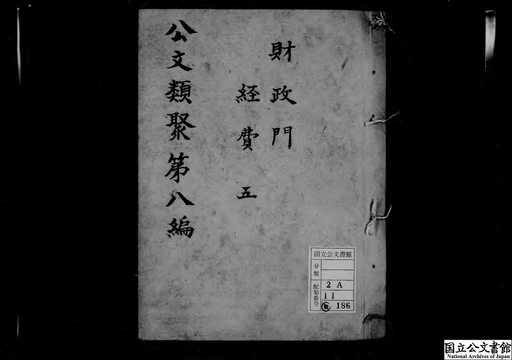 財政門
経費五
公文類聚第八編
国立公文書館
分類
配架番号
2A
11
186
国立公文書館
National Archives of Japan